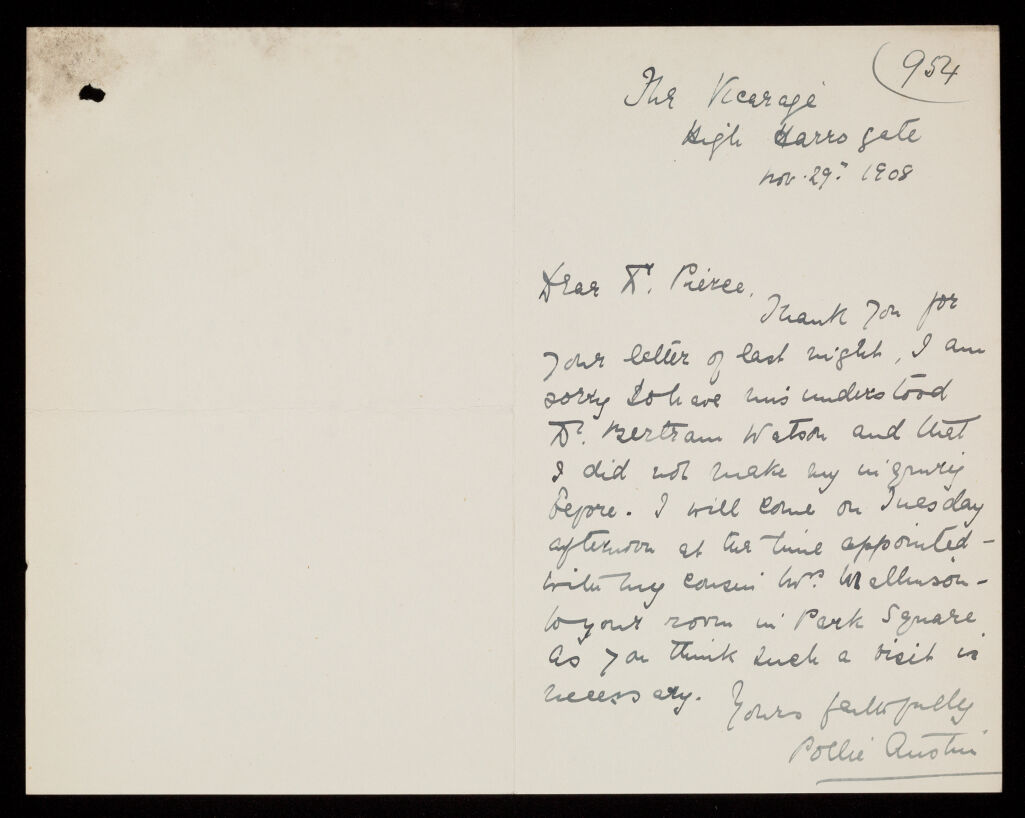 954
The Vicarage
High Harrogate
Nov. 29: 1908
Dear Dr. Pierce,
Thank you for
your letter of last night, I am
sorry to have misunderstood
Dr. Bertram Watson and that
I did not make my inquiry
before. I will come on Tuesday
afternoon at the time appointed -
with my cousin Mrs. Mallinson -
to your room in Park Square
as you think such a visit is
necessary.
Yours faithfully
Pollie Austin